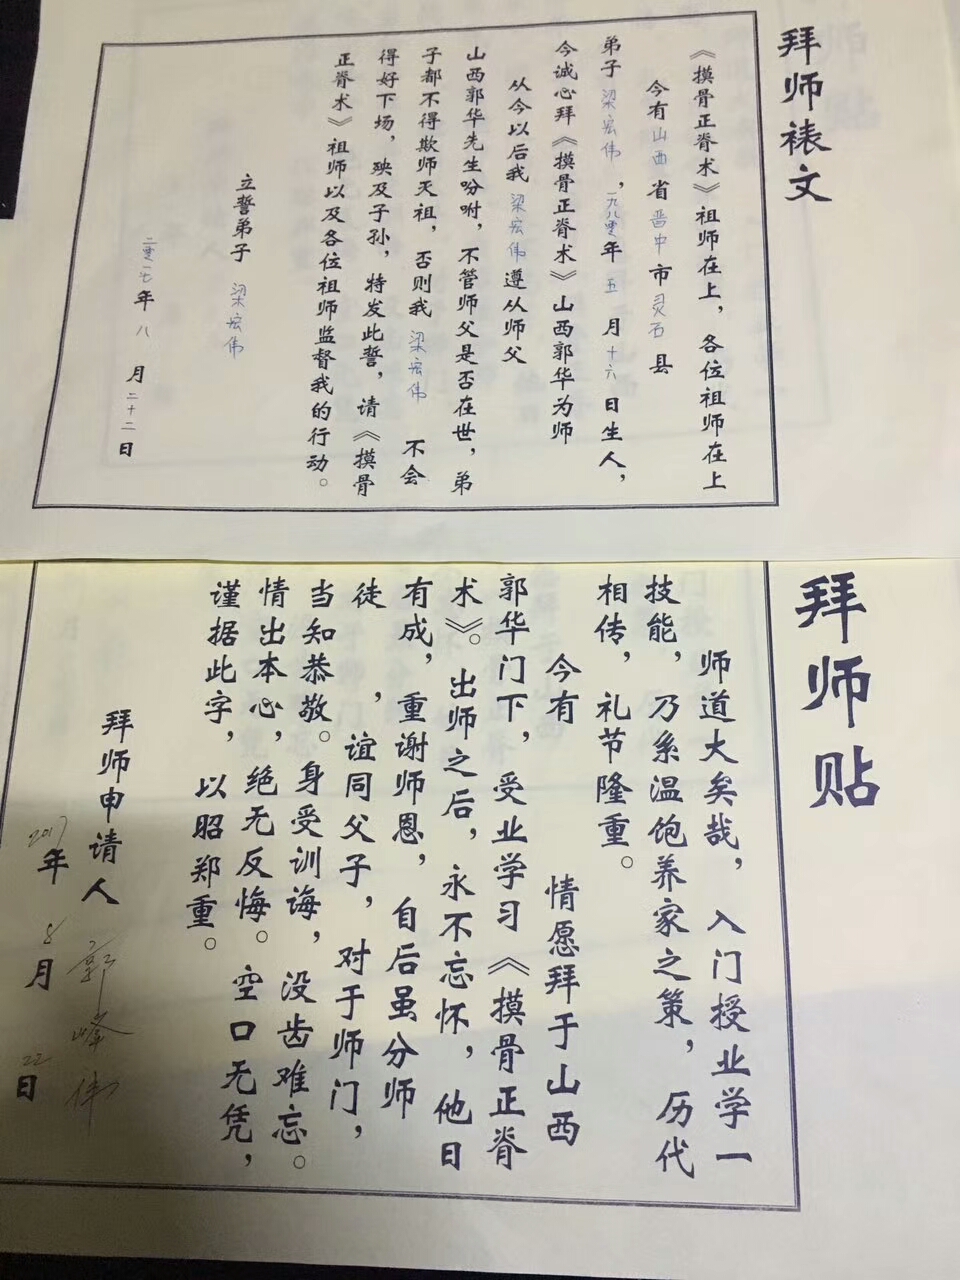 拜师裱文
《摸骨正脊术》祖师在上，各位祖师在上
今有山西省晋中市灵石县
弟子梁宏伟，一九八零年五月十六日生人，
今诚心拜《摸骨正脊术》山西郭华为师
从今以后我梁宏伟遵从师父
山西郭华先生吩咐，不管师父是否在世，弟
子都不得欺师灭祖，否则我梁宏伟不会
得好下场，殃及子孙，特发此誓，请《摸骨
正脊术》祖师以及各位祖师监督我的行动。
立誓弟子 梁宏伟
二零一七年八月二十二日
拜师贴
师道大矣哉，入门授业学一
技能，乃系温饱养家之策，历代
相传，礼节隆重。
今有 情愿拜于山西
郭华门下，受业学习《摸骨正脊
术》。出师之后，永不忘怀，他日
有成，重谢师恩，自后虽分师
徒，谊同父子，对于师门，
当知恭敬。身受训诲，没齿难忘。
情出本心，绝无反悔。空口无凭，
谨据此字，以昭郑重。
拜师申请人 郭峰伟
2017年8月22日